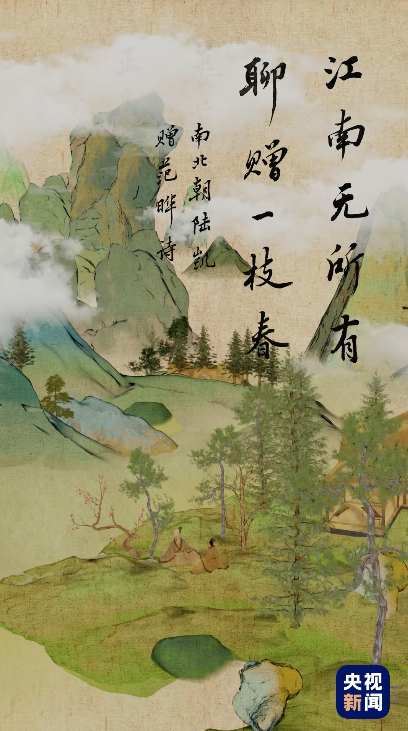 江南无所有
聊赠一枝春
南北朝陆凯
赠范晔诗
央视
新闻